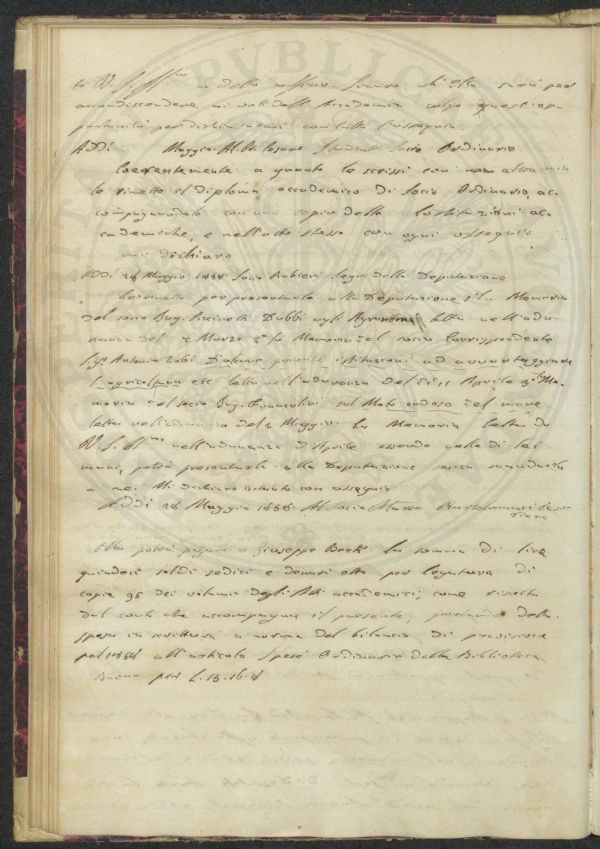 to V. S. Ill.mo e dello stesso che Ella sarà per
accondiscendere ai voti dell'Accademia colgo quest'op
portunità per dichiararmi con tutto l'ossequio
Addì Maggio Al Socio Ordinario
Coerentemente a quanto le scrissi con
le rimetto il diploma accademico di Socio Ordinario, ac
compagnandolo con una copia delle Costituzioni ac
cademiche, e nell'atto stesso con ogni ossequio
mi dichiaro
Addì 24 Maggio 1858 Rubieri Segr. della Deputazione
per presentarle alla Deputazione la Memoria
del socio Ing. Dubbi agli Agronomi letta nell'adu
nanza del Marzo la Memoria del socio Corrispondente
Sig. Antonio Zobi D'alcune private istituzioni ad avvantaggiare
l'agricoltura etc letta nell'adunanza del dì Aprile Me
moria del socio Ing. Francolini sul Moto ondoso del mare
letta nell'adunanza del 2 Maggio. La Memoria letta da
V. S. Ill.mo nell'adunanza d'Aprile essendo nelle di lei
mani, potrà presentarla alla Deputazione senza mandarla
a me. Mi dichiaro intanto con ossequio
Addì 28 Maggio 1858 Al socio Marco Bartolommei Teso
riere
Ella potrà pagare a Giuseppe Berti la somma di lire
quindici soldi sedici e denari otto per legatura di
copie 95 dei volumi degli Atti accademici, come risulta
dal conto che accompagna il presente, portando detta
spesa in scrittura a norma del bilancio di previsione
pel 1858 all'articolo Spese Ordinarie della Biblioteca
Buono per L. 15.16.8